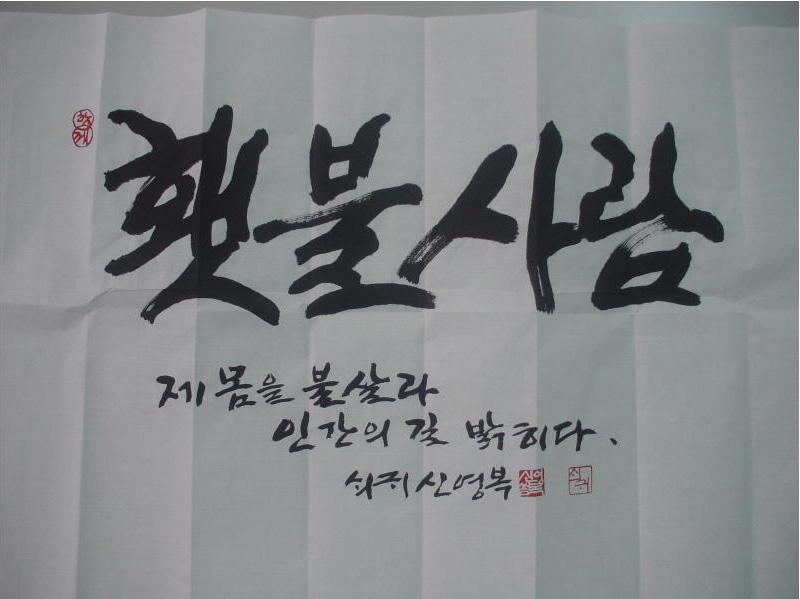 횃불사람
제 몸을 불살라
인간의 길 밝히다.
쇠귀 신영복